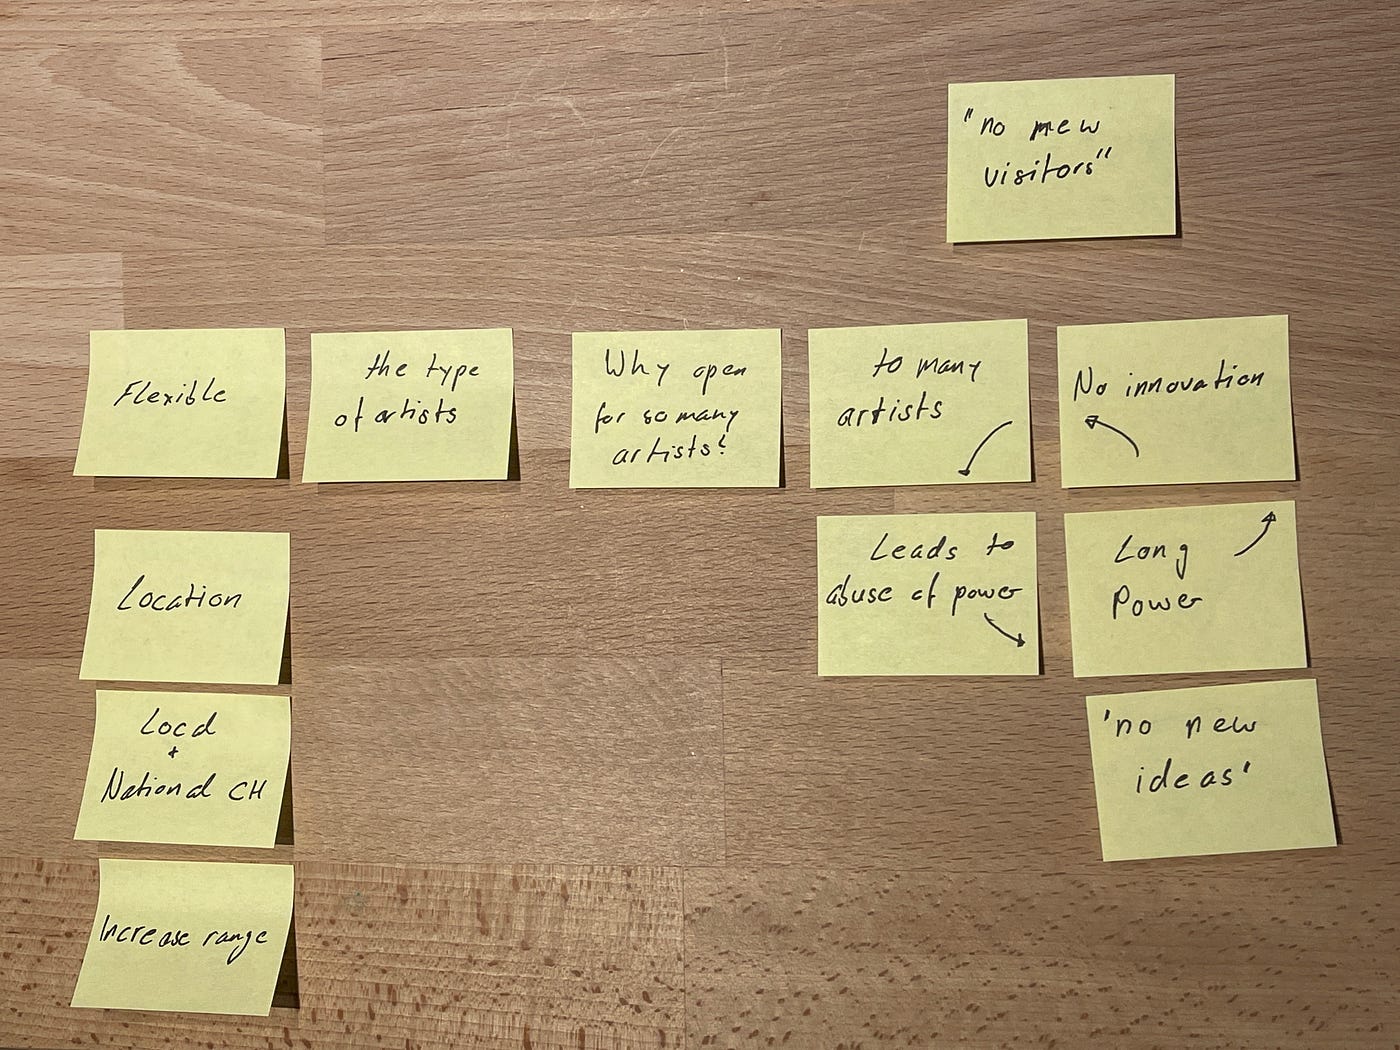 "no new
visitors"
Flexible
the type
of artists
Why open
for so many
artists?
to many
artists
No innovation
Location
Leads to
abuse of power
Long
Power
Local
+
National CH
'no new
ideas'
Increase range